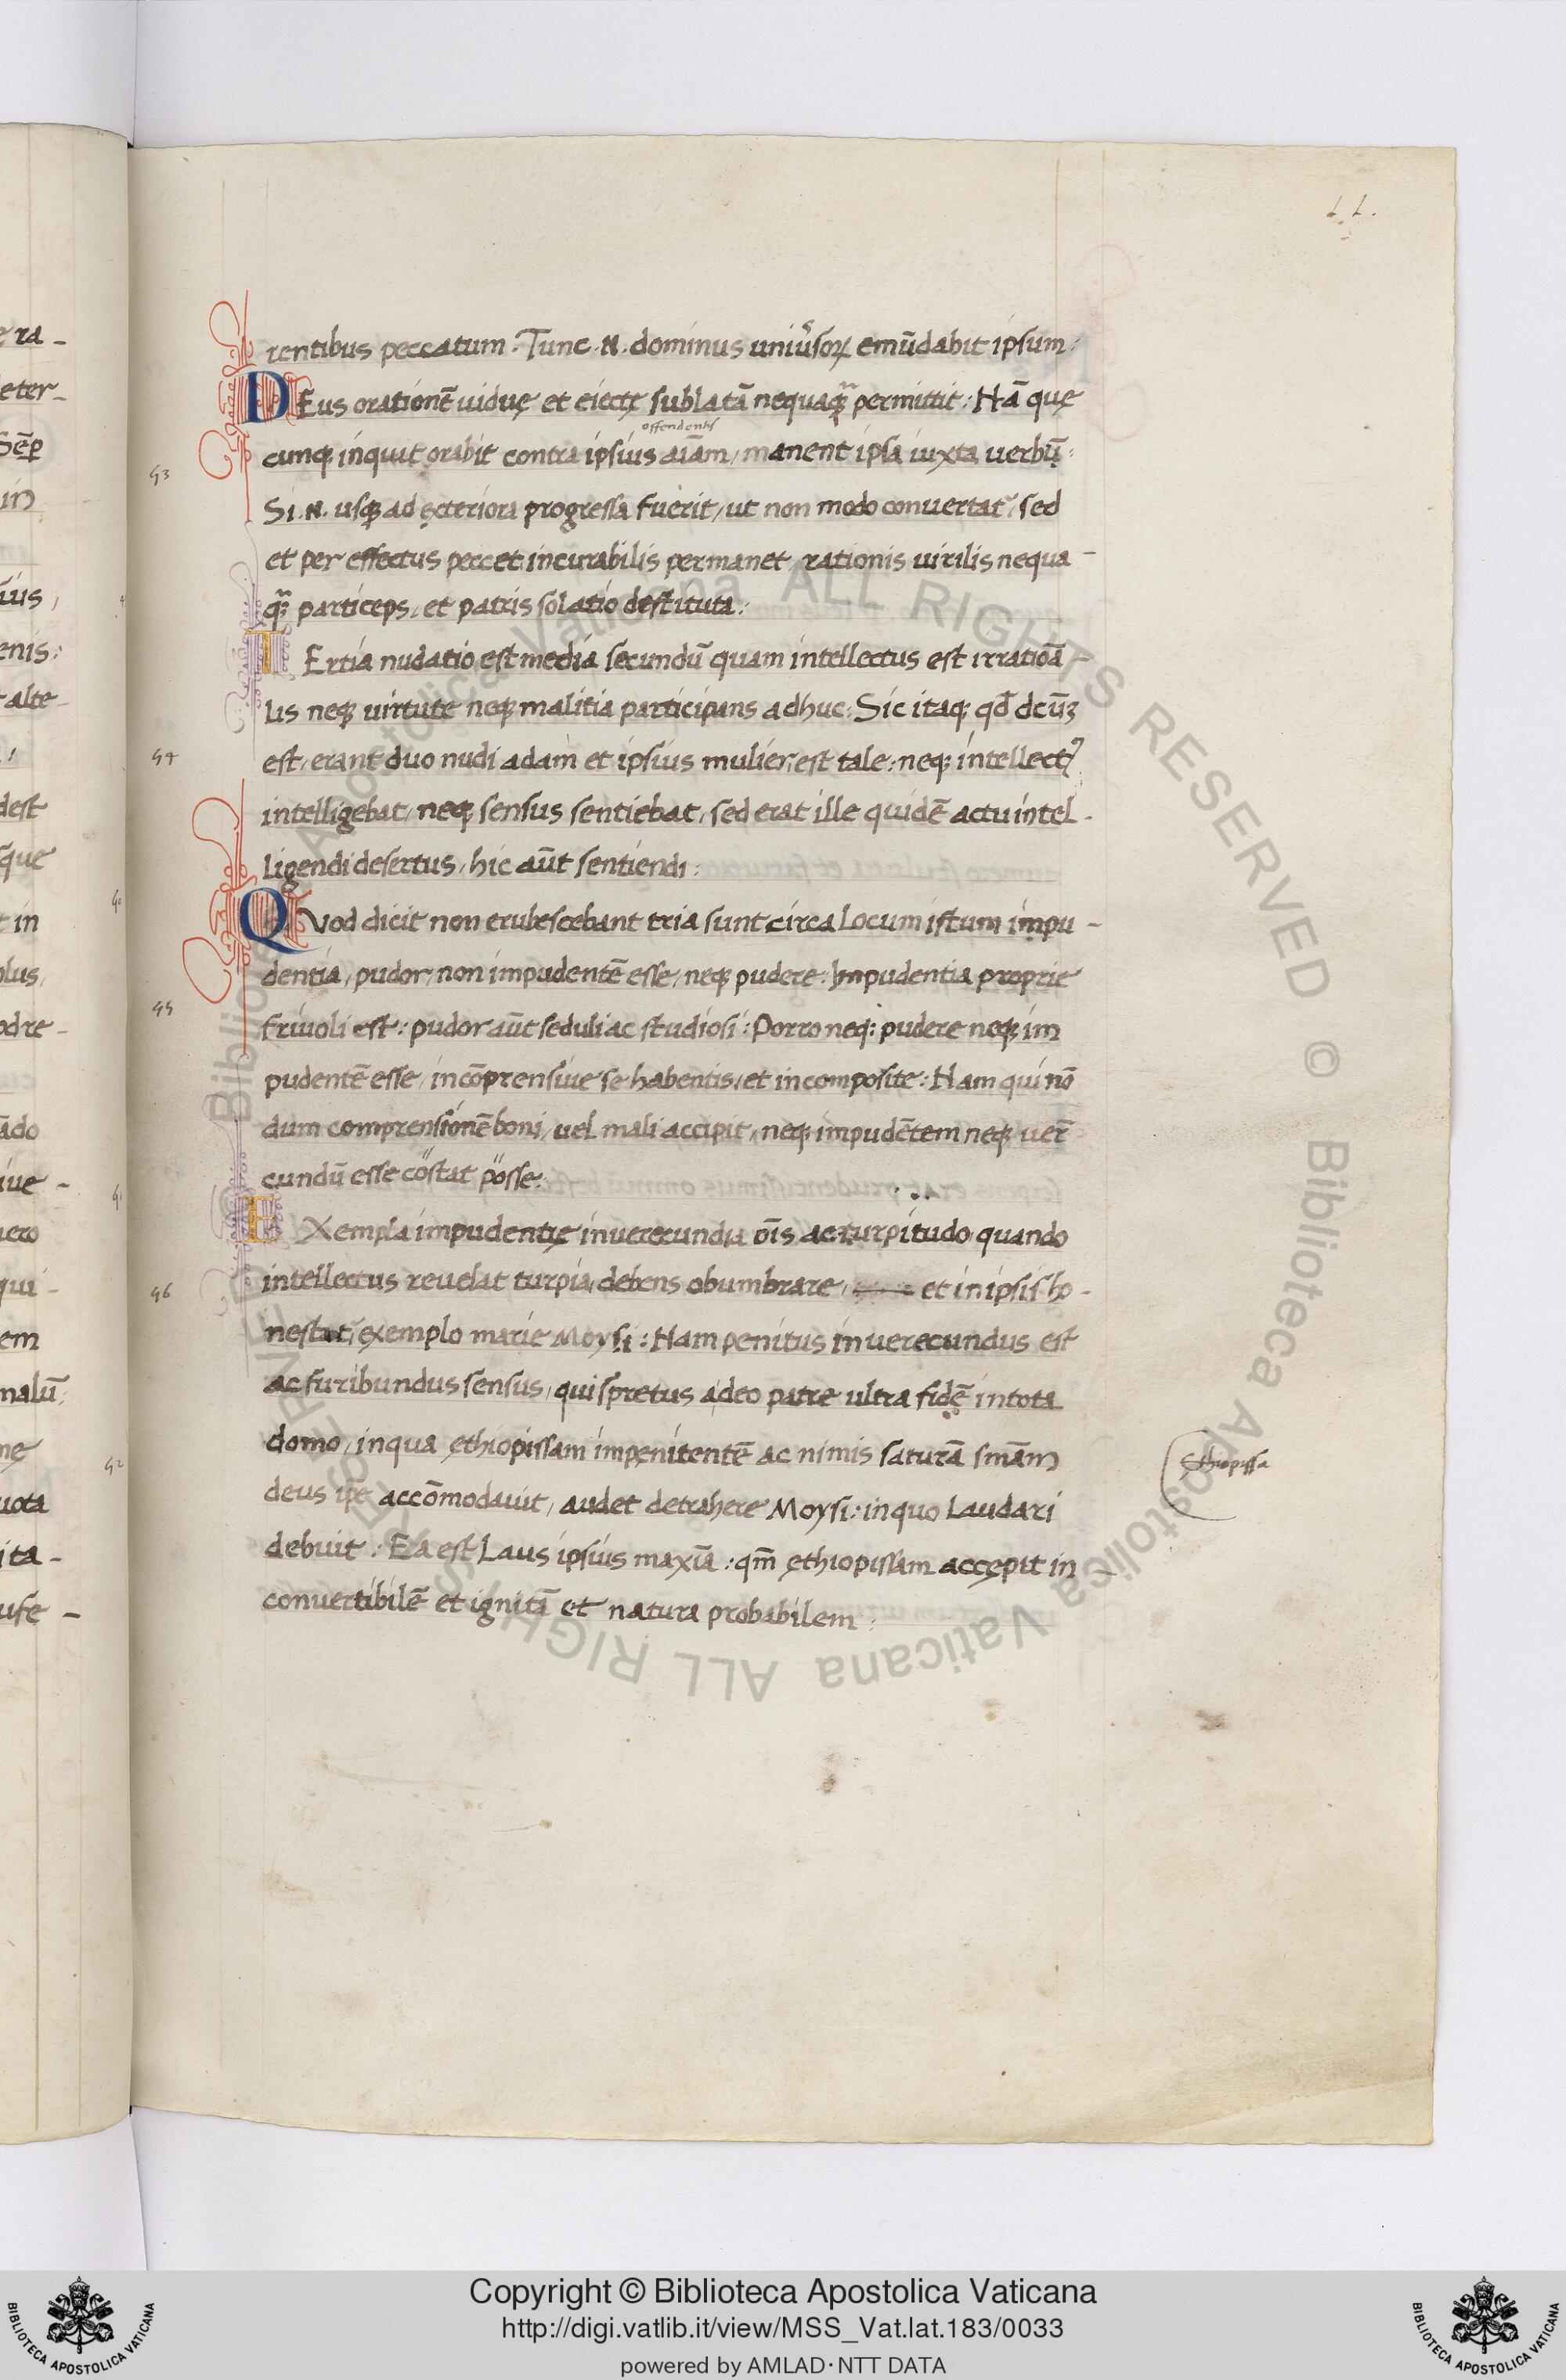 11.
rentibus peccatum. Tunc .N. dominus uniu͛soꝝ emūdabit ipsum:
DEus orationē uiduę et eiectę sublatā nequaqꝫ̄ permittit: Nā quę
offendentis
cunqꝫ inquit orabit contra ipsius aīam, manent ipsa iuxta uerbū:
Si .N. usqꝫ ad exteriora progressa fuerit, ut non modo conuertat᷑, sed
et per effectus peccet incurabilis permanet, rationis uirilis nequa-
qꝫ̄ particeps, et patris solatio destituta:
TErtia nudatio est media secundū quam intellectus est irratiōa-
lis neqꝫ uirtute neqꝫ malitia participans adhuc: Sic itaqꝫ qđ dcūꝫ
est, erant duo nudi adam et ipsius mulier: est tale: neqꝫ intellectꝰ
intelligebat, neqꝫ sensus sentiebat, sed erat ille quidē actu intel-
ligendi desertus, hic aūt sentiendi:
QVod dicit non erubescebant tria sunt circa locum istum impu-
dentia, pudor, non impudentē esse, neqꝫ pudere: Impudentia proprie
friuoli est: pudor aūt seduli ac studiosi: Porro neqꝫ pudere neqꝫ im
pudentē esse, incōprensiue se habentis, et incomposite: Nam qui nō
dum comprensionē boni, uel mali accipit, neqꝫ impudētem neqꝫ uer̄
cundū esse cōstat posse:
EXempla impudentię inuerecundia oīs ac turpitudo quando
intellectus reuelat turpia, debens obumbrare, et in ipsis ho-
nestat᷑, exemplo marie Moysi: Nam penitus inuerecundus est
ac furibundus sensus, qui spretus a deo patre ultra fidē in tota
domo, in qua ęthiopissam impenitentē ac nimis saturā smām
deus ip̄e accōmodauit, audet detrahere Moysi: in quo laudari
debuit: Ea est laus ipsius maxīa: qm̄ ęthiopissam accepit in-
conuertibilē et ignitā et natura probabilem:
43
44
45
46
Ethiopissa
Copyright © Biblioteca Apostolica Vaticana
http://digi.vatlib.it/view/MSS_Vat.lat.183/0033
powered by AMLAD·NTT DATA
BIBLIOTECA APOSTOLICA VATICANA
BIBLIOTECA APOSTOLICA VATICANA